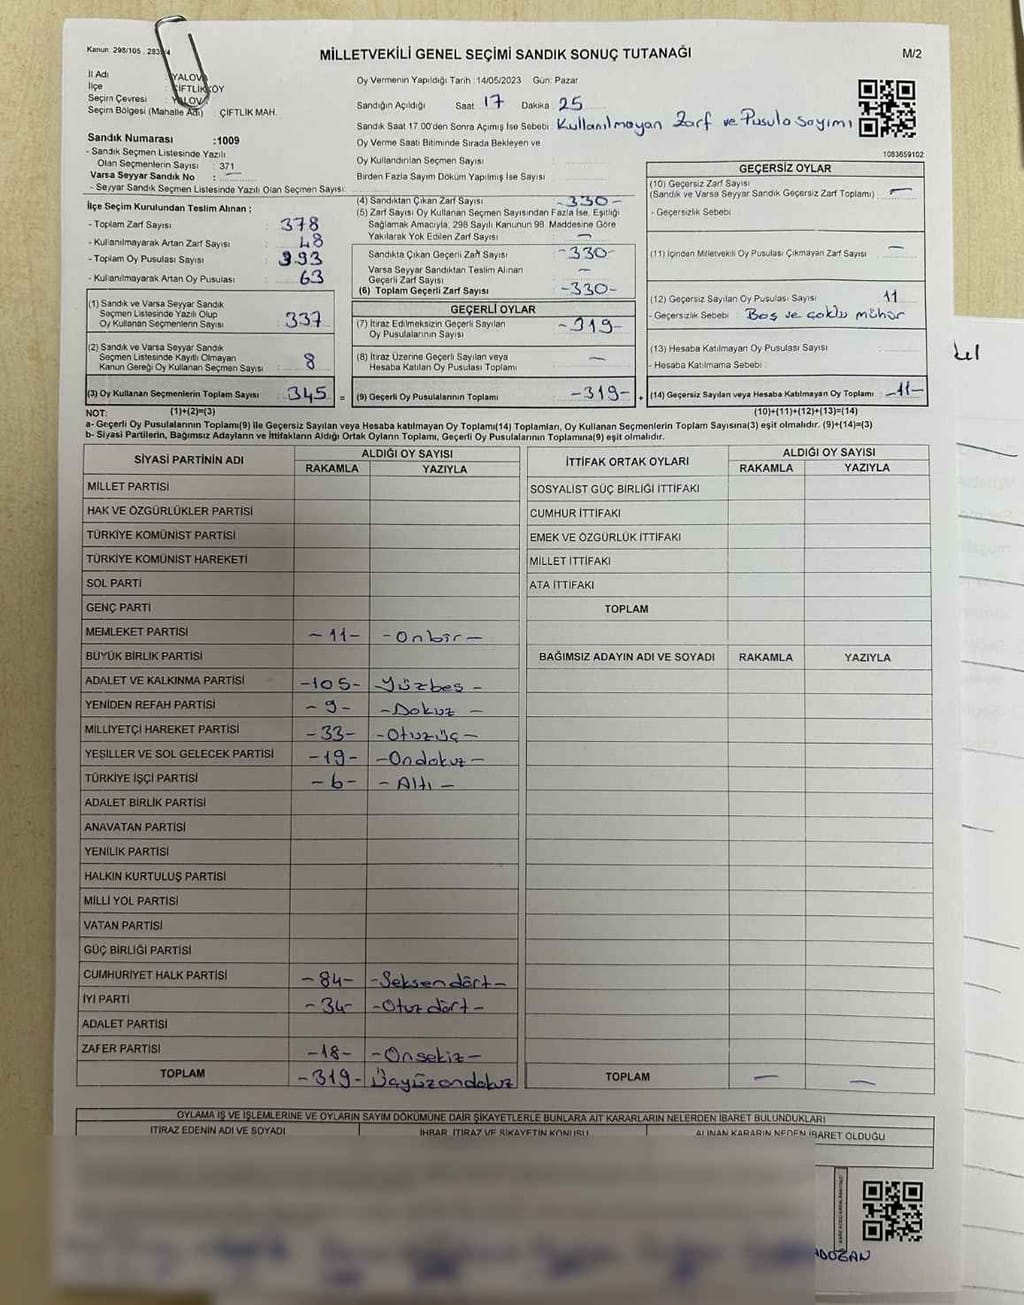 Kanun 298/105, 283
MİLLETVEKİLİ GENEL SEÇİMİ SANDIK SONUÇ TUTANAĞI
M/2
İl Adı YALOVA
İlçe ÇİFTLİKKÖY
Seçim Çevresi YALOVA
Seçim Bölgesi (Mahalle Adı) : ÇİFTLİK MAH.
Oy Vermenin Yapıldığı Tarih : 14/05/2023 Gün: Pazar
Sandığın Açıldığı Saat 17 Dakika 25
Sandık Saat 17.00'den Sonra Açımış İse Sebebi : Kullanılmayan Zarf ve Pusula sayımı
Oy Verme Saati Bitiminde Sırada Bekleyen ve
Oy Kullandırılan Seçmen Sayısı
Birden Fazla Sayım Döküm Yapılmış İse Sayısı
1083659102
Sandık Numarası :1009
- Sandık Seçmen Listesinde Yazılı
Olan Seçmenlerin Sayısı : 371
Varsa Seyyar Sandık No : —
- Seyyar Sandık Seçmen Listesinde Yazılı Olan Seçmen Sayısı:
İlçe Seçim Kurulundan Teslim Alınan :
- Toplam Zarf Sayısı : 378
- Kullanılmayarak Artan Zarf Sayısı : 48
- Toplam Oy Pusulası Sayısı : 393
- Kullanılmayarak Artan Oy Pusulası : 63
(1) Sandık ve Varsa Seyyar Sandık
Seçmen Listesinde Yazılı Olup
Oy Kullanan Seçmenlerin Sayısı : 337
(2) Sandık ve Varsa Seyyar Sandık
Seçmen Listesinde Kayıtlı Olmayan
Kanun Gereği Oy Kullanan Seçmen Sayısı : 8
(3) Oy Kullanan Seçmenlerin Toplam Sayısı : 345 =
(4) Sandıktan Çıkan Zarf Sayısı -330-
(5) Zarf Sayısı Oy Kullanan Seçmen Sayısından Fazla İse, Eşitliği
Sağlamak Amacıyla, 298 Sayılı Kanunun 98. Maddesine Göre
Yakılarak Yok Edilen Zarf Sayısı —
Sandıkta Çıkan Geçerli Zarf Sayısı -330-
Varsa Seyyar Sandıktan Teslim Alınan
Geçerli Zarf Sayısı —
(6) Toplam Geçerli Zarf Sayısı -330-
GEÇERLİ OYLAR
(7) İtiraz Edilmeksizin Geçerli Sayılan
Oy Pusulalarının Sayısı -319-
(8) İtiraz Üzerine Geçerli Sayılan veya
Hesaba Katılan Oy Pusulası Toplamı —
(9) Geçerli Oy Pusulalarının Toplamı -319- +
GEÇERSİZ OYLAR
(10) Geçersiz Zarf Sayısı
(Sandık ve Varsa Seyyar Sandık Geçersiz Zarf Toplamı) : —
- Geçersizlik Sebebi :
(11) İçinden Milletvekili Oy Pusulası Çıkmayan Zarf Sayısı —
(12) Geçersiz Sayılan Oy Pusulası Sayısı 11
- Geçersizlik Sebebi : Boş ve çoklu mühür
(13) Hesaba Katılmayan Oy Pusulası Sayısı
- Hesaba Katılmama Sebebi :
(14) Geçersiz Sayılan veya Hesaba Katılmayan Oy Toplamı -11-
NOT: (1)+(2)=(3) (10)+(11)+(12)+(13)=(14)
a- Geçerli Oy Pusulalarının Toplamı(9) ile Geçersiz Sayılan veya Hesaba katılmayan Oy Toplamı(14) Toplamları, Oy Kullanan Seçmenlerin Toplam Sayısına(3) eşit olmalıdır. (9)+(14)=(3)
b- Siyasi Partilerin, Bağımsız Adayların ve İttifakların Aldığı Ortak Oyların Toplamı, Geçerli Oy Pusulalarının Toplamına(9) eşit olmalıdır.
SİYASİ PARTİNİN ADI ALDIĞI OY SAYISI
RAKAMLA YAZIYLA
MİLLET PARTİSİ
HAK VE ÖZGÜRLÜKLER PARTİSİ
TÜRKİYE KOMÜNİST PARTİSİ
TÜRKİYE KOMÜNİST HAREKETİ
SOL PARTİ
GENÇ PARTİ
MEMLEKET PARTİSİ -11- -Onbir-
BÜYÜK BİRLİK PARTİSİ
ADALET VE KALKINMA PARTİSİ -105- Yüzbeş -
YENİDEN REFAH PARTİSİ -9- -Dokuz -
MİLLİYETÇİ HAREKET PARTİSİ -33- -Otuzüç-
YEŞİLLER VE SOL GELECEK PARTİSİ -19- -Ondokuz-
TÜRKİYE İŞÇİ PARTİSİ -6- -Altı-
ADALET BİRLİK PARTİSİ
ANAVATAN PARTİSİ
YENİLİK PARTİSİ
HALKIN KURTULUŞ PARTİSİ
MİLLİ YOL PARTİSİ
VATAN PARTİSİ
GÜÇ BİRLİĞİ PARTİSİ
CUMHURİYET HALK PARTİSİ -84- -Seksendört-
İYİ PARTİ -34- -Otuzdört-
ADALET PARTİSİ
ZAFER PARTİSİ -18- -Onsekiz-
TOPLAM -319- Üçyüzondokuz
İTTİFAK ORTAK OYLARI ALDIĞI OY SAYISI
RAKAMLA YAZIYLA
SOSYALİST GÜÇ BİRLİĞİ İTTİFAKI
CUMHUR İTTİFAKI
EMEK VE ÖZGÜRLÜK İTTİFAKI
MİLLET İTTİFAKI
ATA İTTİFAKI
TOPLAM
BAĞIMSIZ ADAYIN ADI VE SOYADI RAKAMLA YAZIYLA
TOPLAM — —
OYLAMA İŞ VE İŞLEMLERİNE VE OYLARIN SAYIM DÖKÜMÜNE DAİR ŞİKAYETLERLE BUNLARA AİT KARARLARIN NELERDEN İBARET BULUNDUKLARI
İTİRAZ EDENİN ADI VE SOYADI İHBAR, İTİRAZ VE ŞİKAYETİN KONUSU ALINAN KARARIN NEDEN İBARET OLDUĞU